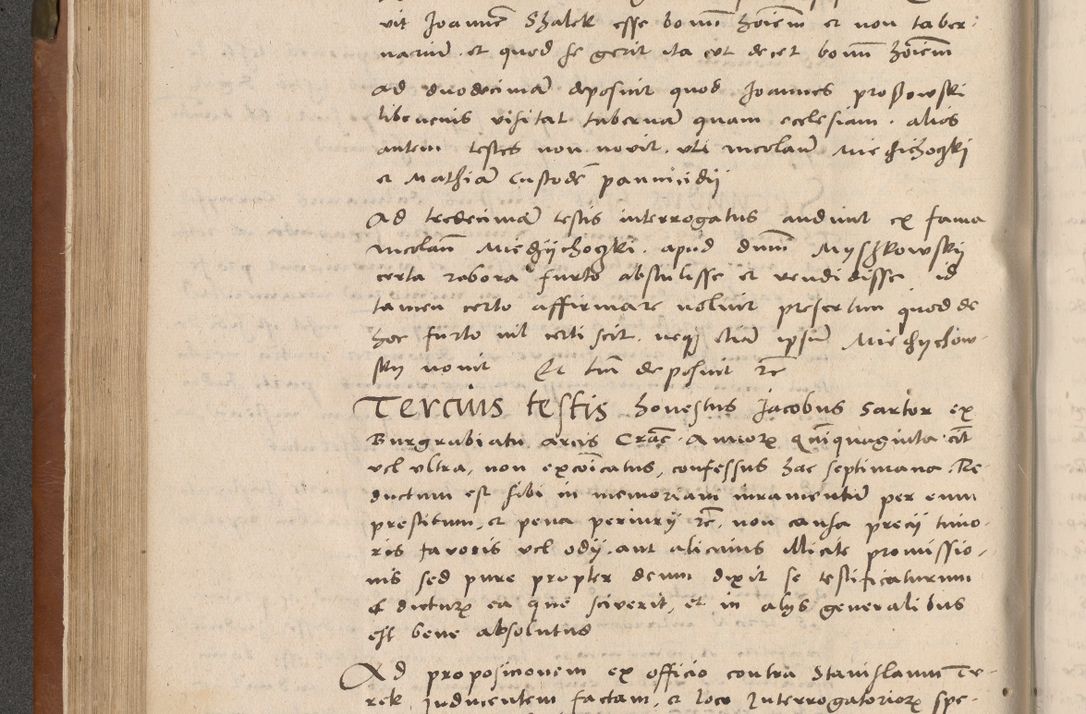 vit Joannem Shalek esse bonum hoiem et non taber-
narium et quod se gerit ita ut decet bonum hoiem
Ad duodecimam deposuit quod Joannes proßowski
libencius visitat tabernam quam ecclesiam. alios
autem testes non novit. uti nicolaum Miechichoczki
et Mathiam Custodem pannicidii
Ad tredecimam testis interrogatus audivit ex fama
nicolaum Miechychoczki. apud dnum Myschkowskij
certa robora furto abstulisse et vendidisse id
tamen certo affirmare noluit presertim quod de
hoc furto nil certi scit. neque etiam ipsum Miechychow-
sky novit Et tm deposuit etc
Tercius testis honestus Jacobus Sartor ex
Burgrabiatu arcis Crac. Annorum quinquaginta cit
vel ultra, non excoicatus, confessus hac septimana. Re-
ductum est sibi in memoriam iuramentum per eum
prestitum, et pena periurij etc. non causa precij timo-
ris favoris vel odij. aut alicuius illicite promissio-
nis sed pure propter deum dixit se testificaturum
et dicturum ea que sciverit, et in alys generalibus
est bene absolutus
Ad proposicionem ex officio contra Stanislaum Te-
rek Juducentem factam, et loco Interrogatoriorum spe-